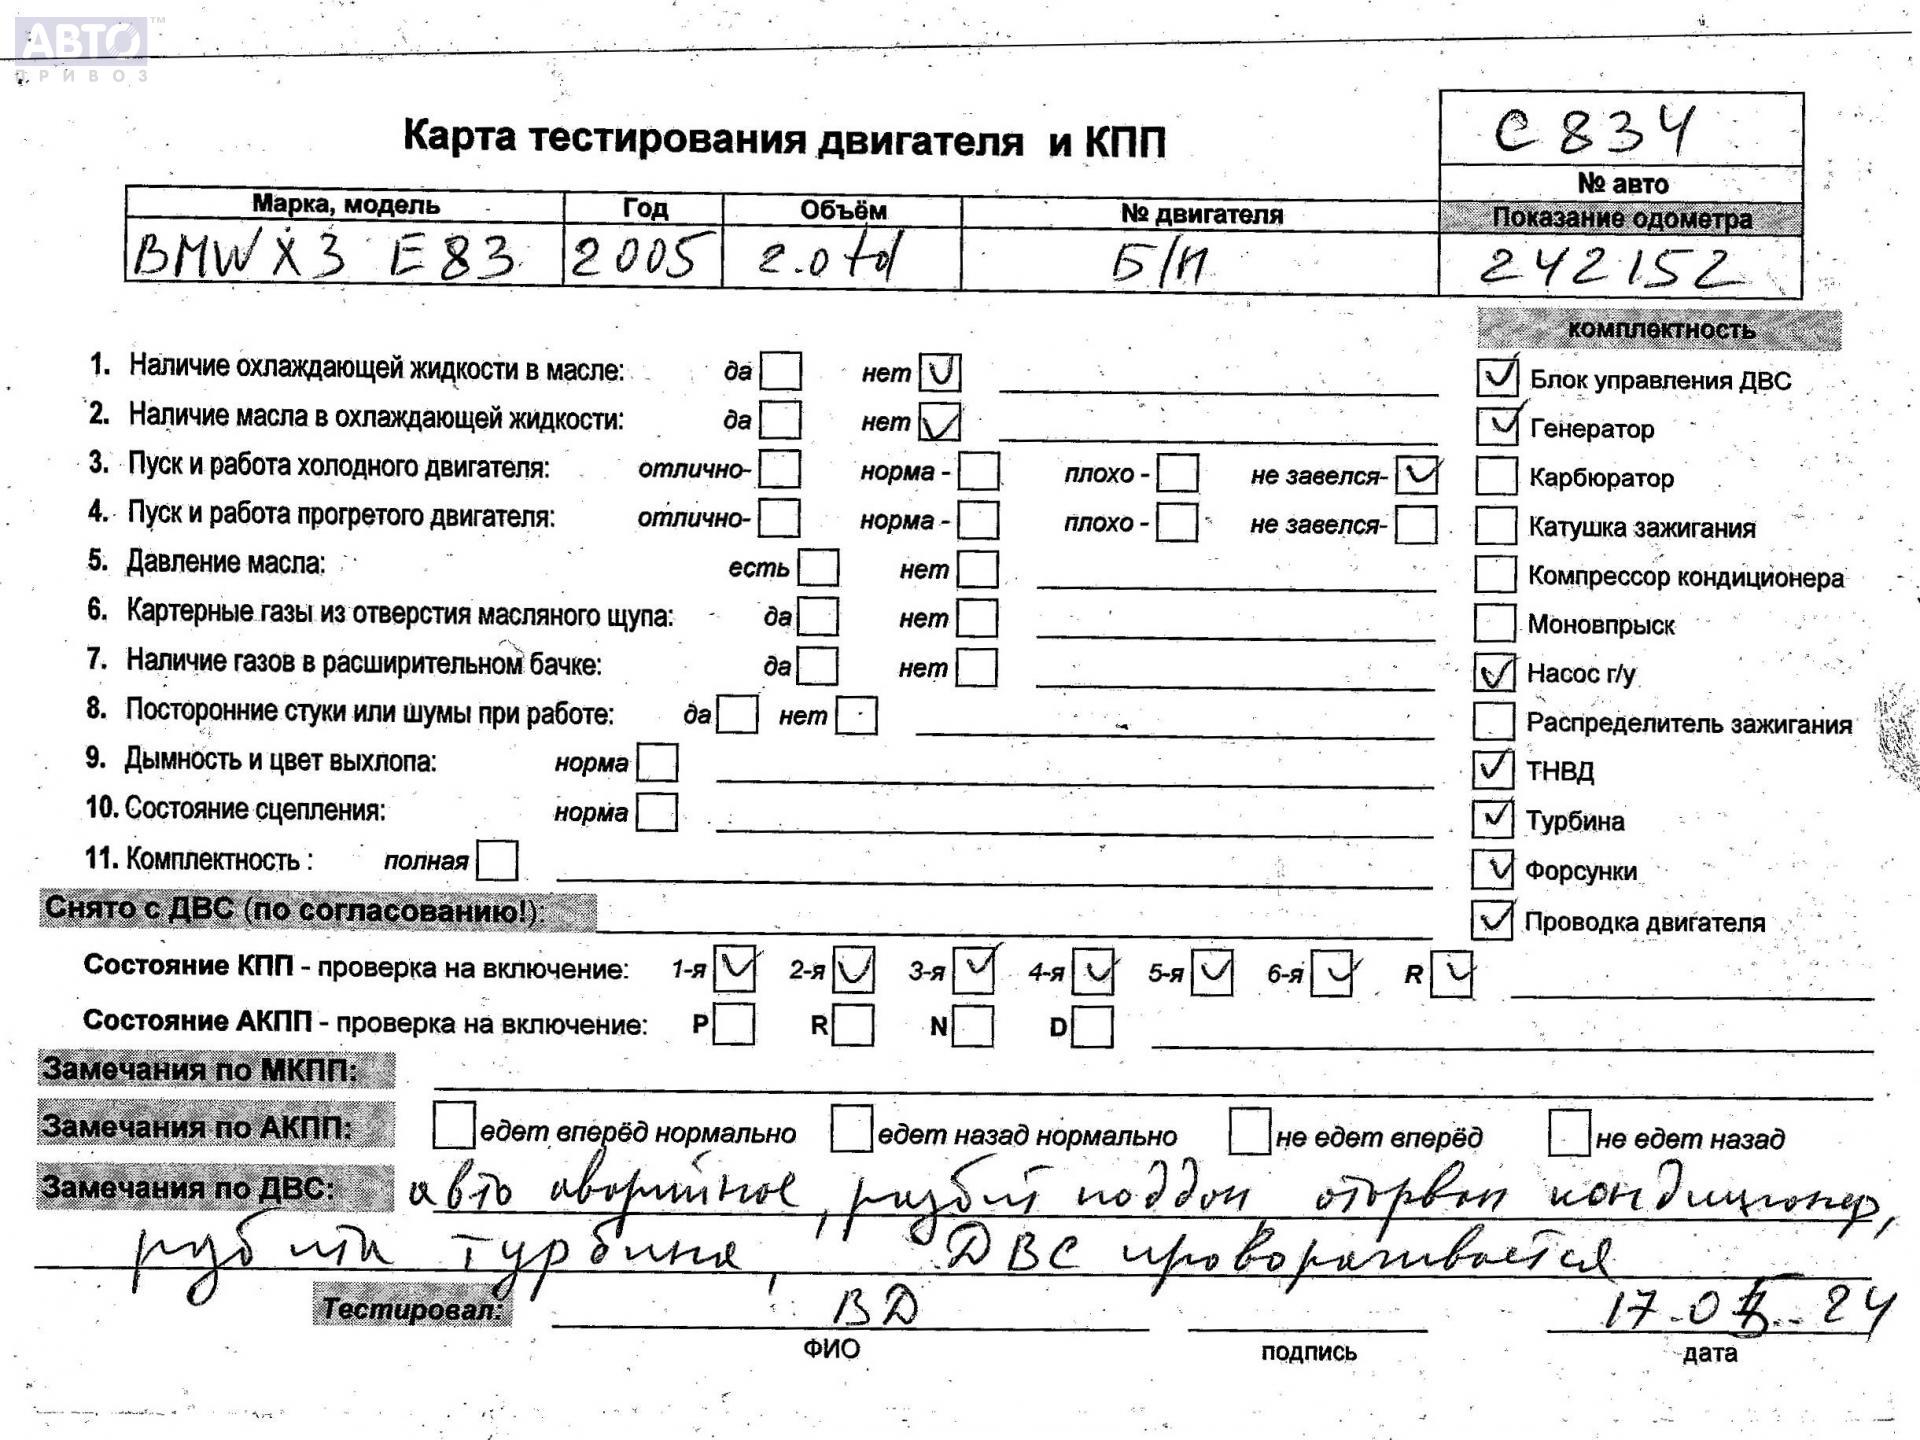 АВТО™
ПРИВОЗ
Карта тестирования двигателя и КПП
С 834
№ авто
Марка, модель Год Объём № двигателя Показание одометра
BMW X3 E83 2005 2.0 td Б/Н 242152
комплектность
1. Наличие охлаждающей жидкости в масле: да нет ✓
Блок управления ДВС ✓
2. Наличие масла в охлаждающей жидкости: да нет ✓
Генератор ✓
3. Пуск и работа холодного двигателя: отлично- норма - плохо - не завелся- ✓
Карбюратор
4. Пуск и работа прогретого двигателя: отлично- норма - плохо - не завелся-
Катушка зажигания
5. Давление масла: есть нет
Компрессор кондиционера
6. Картерные газы из отверстия масляного щупа: да нет
Моновпрыск
7. Наличие газов в расширительном бачке: да нет
✓ Насос г/у
8. Посторонние стуки или шумы при работе: да нет
Распределитель зажигания
9. Дымность и цвет выхлопа: норма
✓ ТНВД
10. Состояние сцепления: норма
✓ Турбина
11. Комплектность : полная
✓ Форсунки
Снято с ДВС (по согласованию!):
✓ Проводка двигателя
Состояние КПП - проверка на включение: 1-я ✓ 2-я ✓ 3-я ✓ 4-я ✓ 5-я ✓ 6-я ✓ R ✓
Состояние АКПП - проверка на включение: P R N D
Замечания по МКПП:
Замечания по АКПП: едет вперёд нормально едет назад нормально не едет вперёд не едет назад
Замечания по ДВС: авто аварийное, разбит поддон, оторван кондиционер,
разбита турбина, ДВС проворачивается
Тестировал: ВД 17.0 .24
ФИО подпись дата